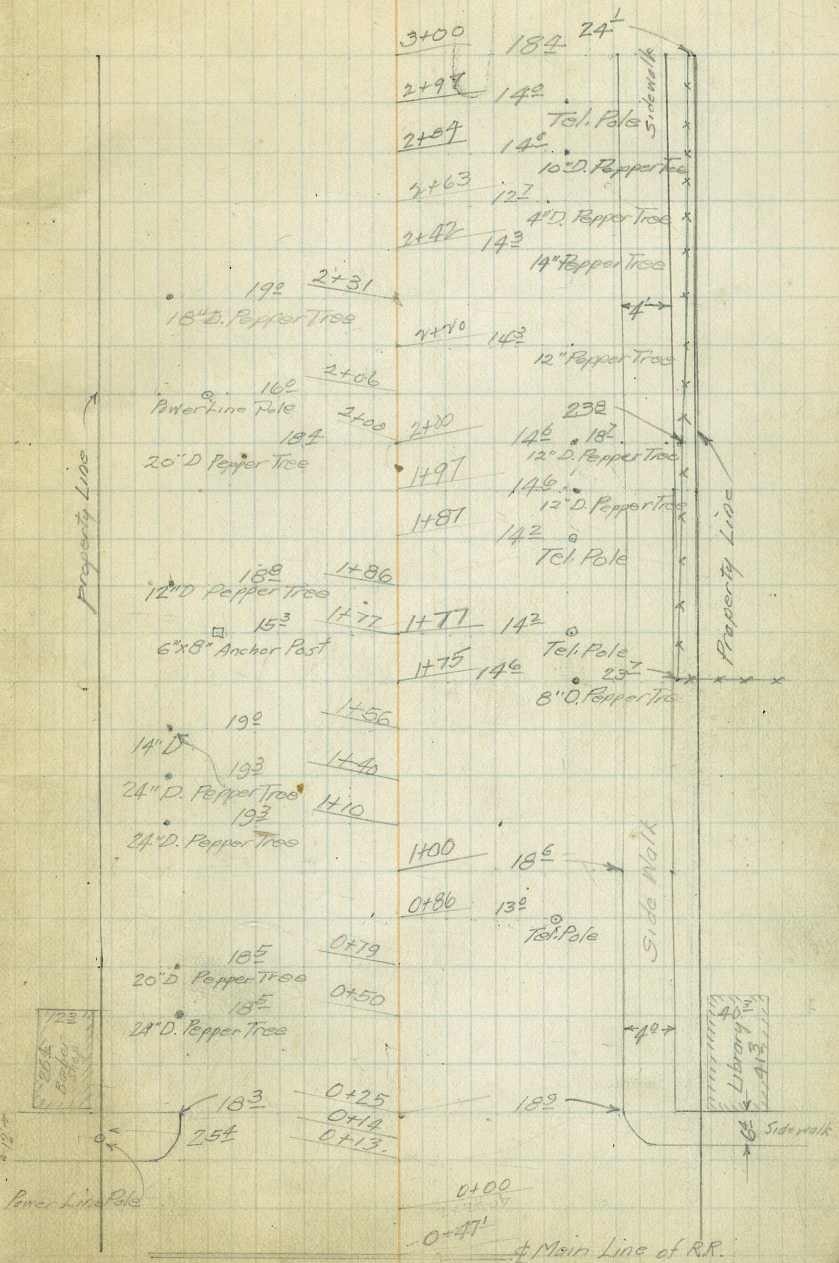 3+00 18 4 24 1
2+97 14 0
Tel. Pole
2+84 14 8
10" D. Pepper Tree
2+63 12 7
4" D. Pepper Tree
2+42 14 3
14" Pepper Tree
Sidewalk
19 0 2+31
18" D. Pepper Tree
4'
2+20 14 3
12" Pepper Tree
16 0 2+06
Power Line Pole
18 4 2+00
20" D Pepper Tree
2+00 14 6 18 7
12" D. Pepper Tree
1+97 14 6
12" D. Pepper Tree
1+87 14 2
Tel. Pole
Property Line
Property Line
1+86
12" D Pepper Tree
15 3 1+77
6"x8" Anchor Post
1+77 14 2
Tel. Pole
1+75 14 6 23 7
8" D. Pepper Tre
19 0 1+56
14" D
19 3 1+40
24" D. Pepper Tree
19 3 1+10
24" D. Pepper Tree
1+00 18 6
0+86 13 0
Tel. Pole
Side Walk
18 5 0+79
20" D Pepper Tree
18 5 0+50
24" D. Pepper Tree
4 0
Barber Shop
26 4
Library
41 3
18 3 0+25
0+14
25 4 0+13
18 9
6 4
Sidewalk
Power Line Pole
0+00
0+47 1
℄ Main Line of R.R.